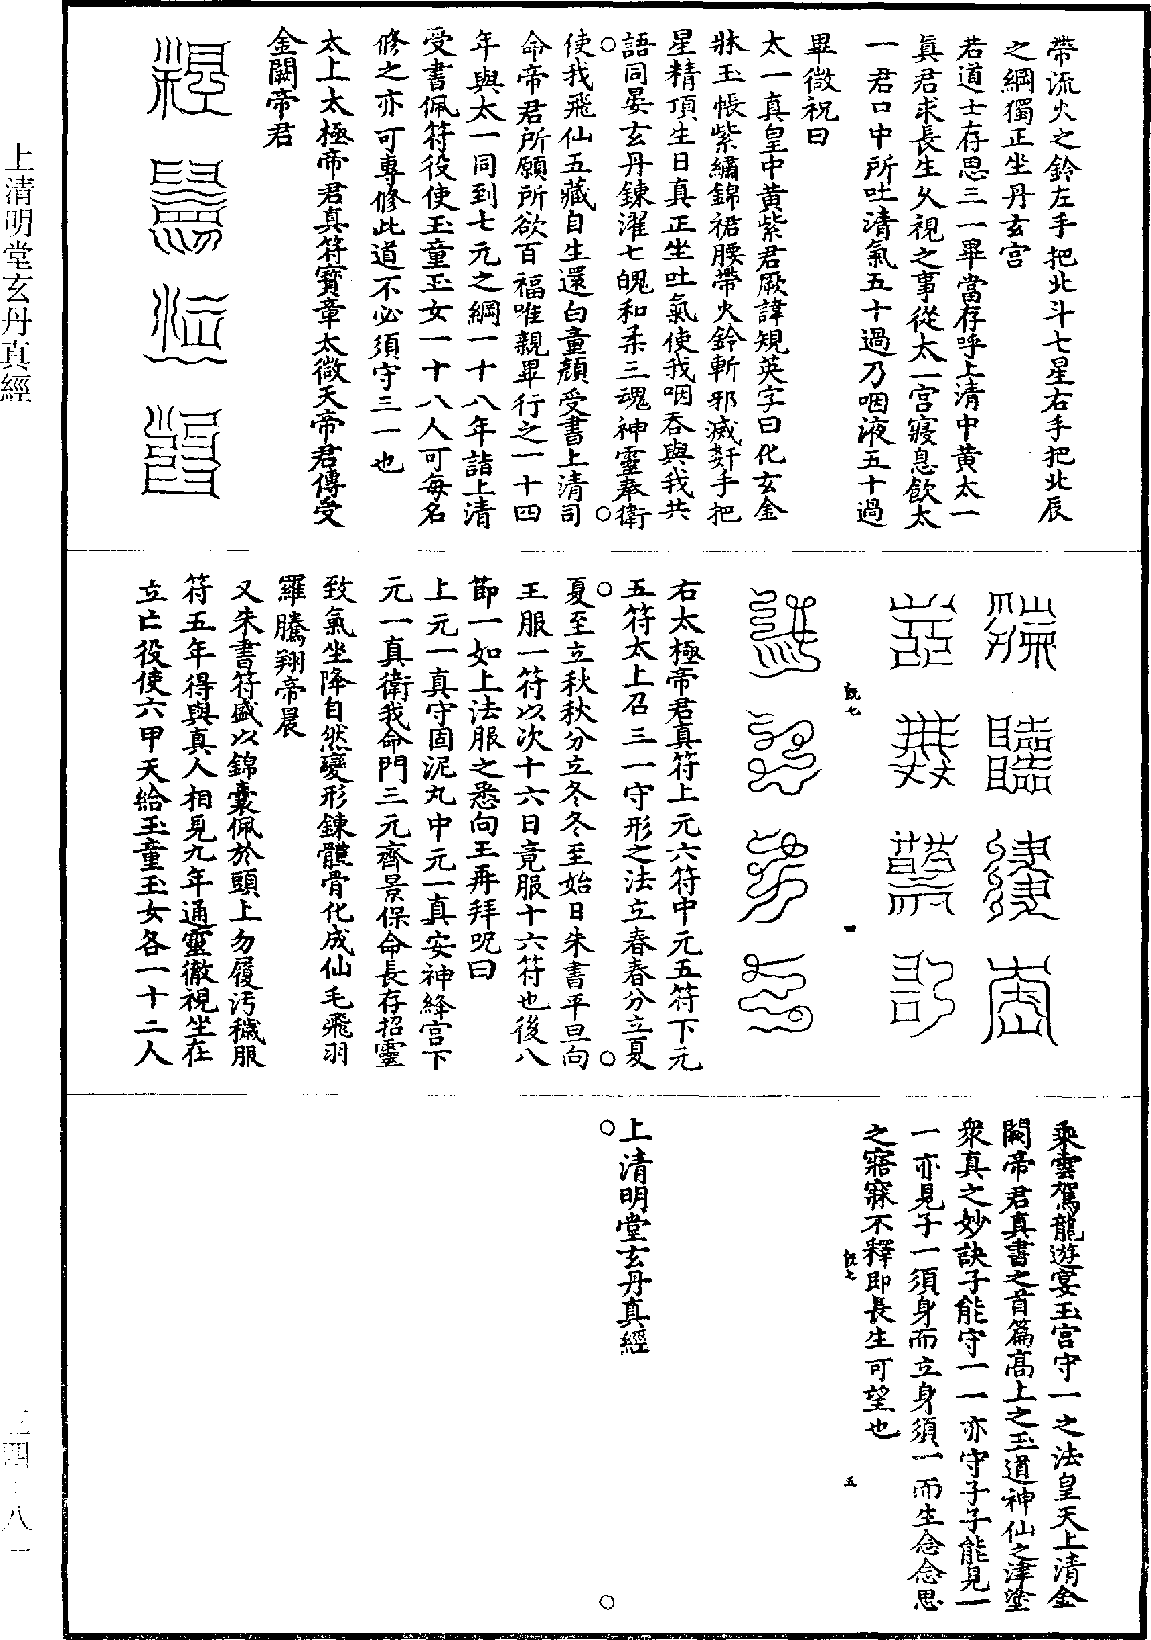 帶流火之鈴左手把北斗七星右手把北辰
之綱獨正坐丹玄宮
若道士存思三一畢當存呼上清中黃太一
真君求長生久視之事從太一宮寢息飲太
一君口中所吐清氣五十過乃咽液五十過
畢微祝曰
太一真皇中黃紫君厥諱規英字曰化玄金
牀玉帳紫繡錦裙腰帶火鈴斬邪滅姧手把
星精頂生日真正坐吐氣使我咽吞與我共
語同晏玄丹鍊濯七魄和柔三魂神靈奉衛
使我飛仙五藏自生還白童顏受書上清司
命帝君所願所欲百福唯親畢行之一十四
年與太一同到七元之綱一十八年詣上清
受書佩符役使玉童玉女一十八人可每名
修之亦可專修此道不必須守三一也
太上太極帝君真符寶章太微天帝君傳受
金闕帝君
右太極帝君真符上元六符中元五符下元
五符太上召三一守形之法立春春分立夏
夏至立秋秋分立冬冬至始日朱書平旦向
王服一符以次十六日竟服十六符也後八
節一如上法服之悉向王再拜呪曰
上元一真守固泥丸中元一真安神絳宮下
元一真衛我命門三元齊景保命長存招靈
致氣坐降自然變形鍊髓骨化成仙毛飛羽
羅騰翔帝晨
又朱書符盛以錦囊佩於頭上勿履污穢服
符五年得與真人相見九年通靈徹視坐在
立亡役使六甲天給玉童玉女各一十二人
乘雲駕龍遊宴玉宮守一之法皇天上清金
闕帝君真書之首篇高上之玉道神仙之津塗
衆真之妙訣子能守一一亦守子子能見一
一亦見子一須身而立身須一而生念念思
之寤寐不釋即長生可望也
上清明堂玄丹真經
上清明堂玄丹真經